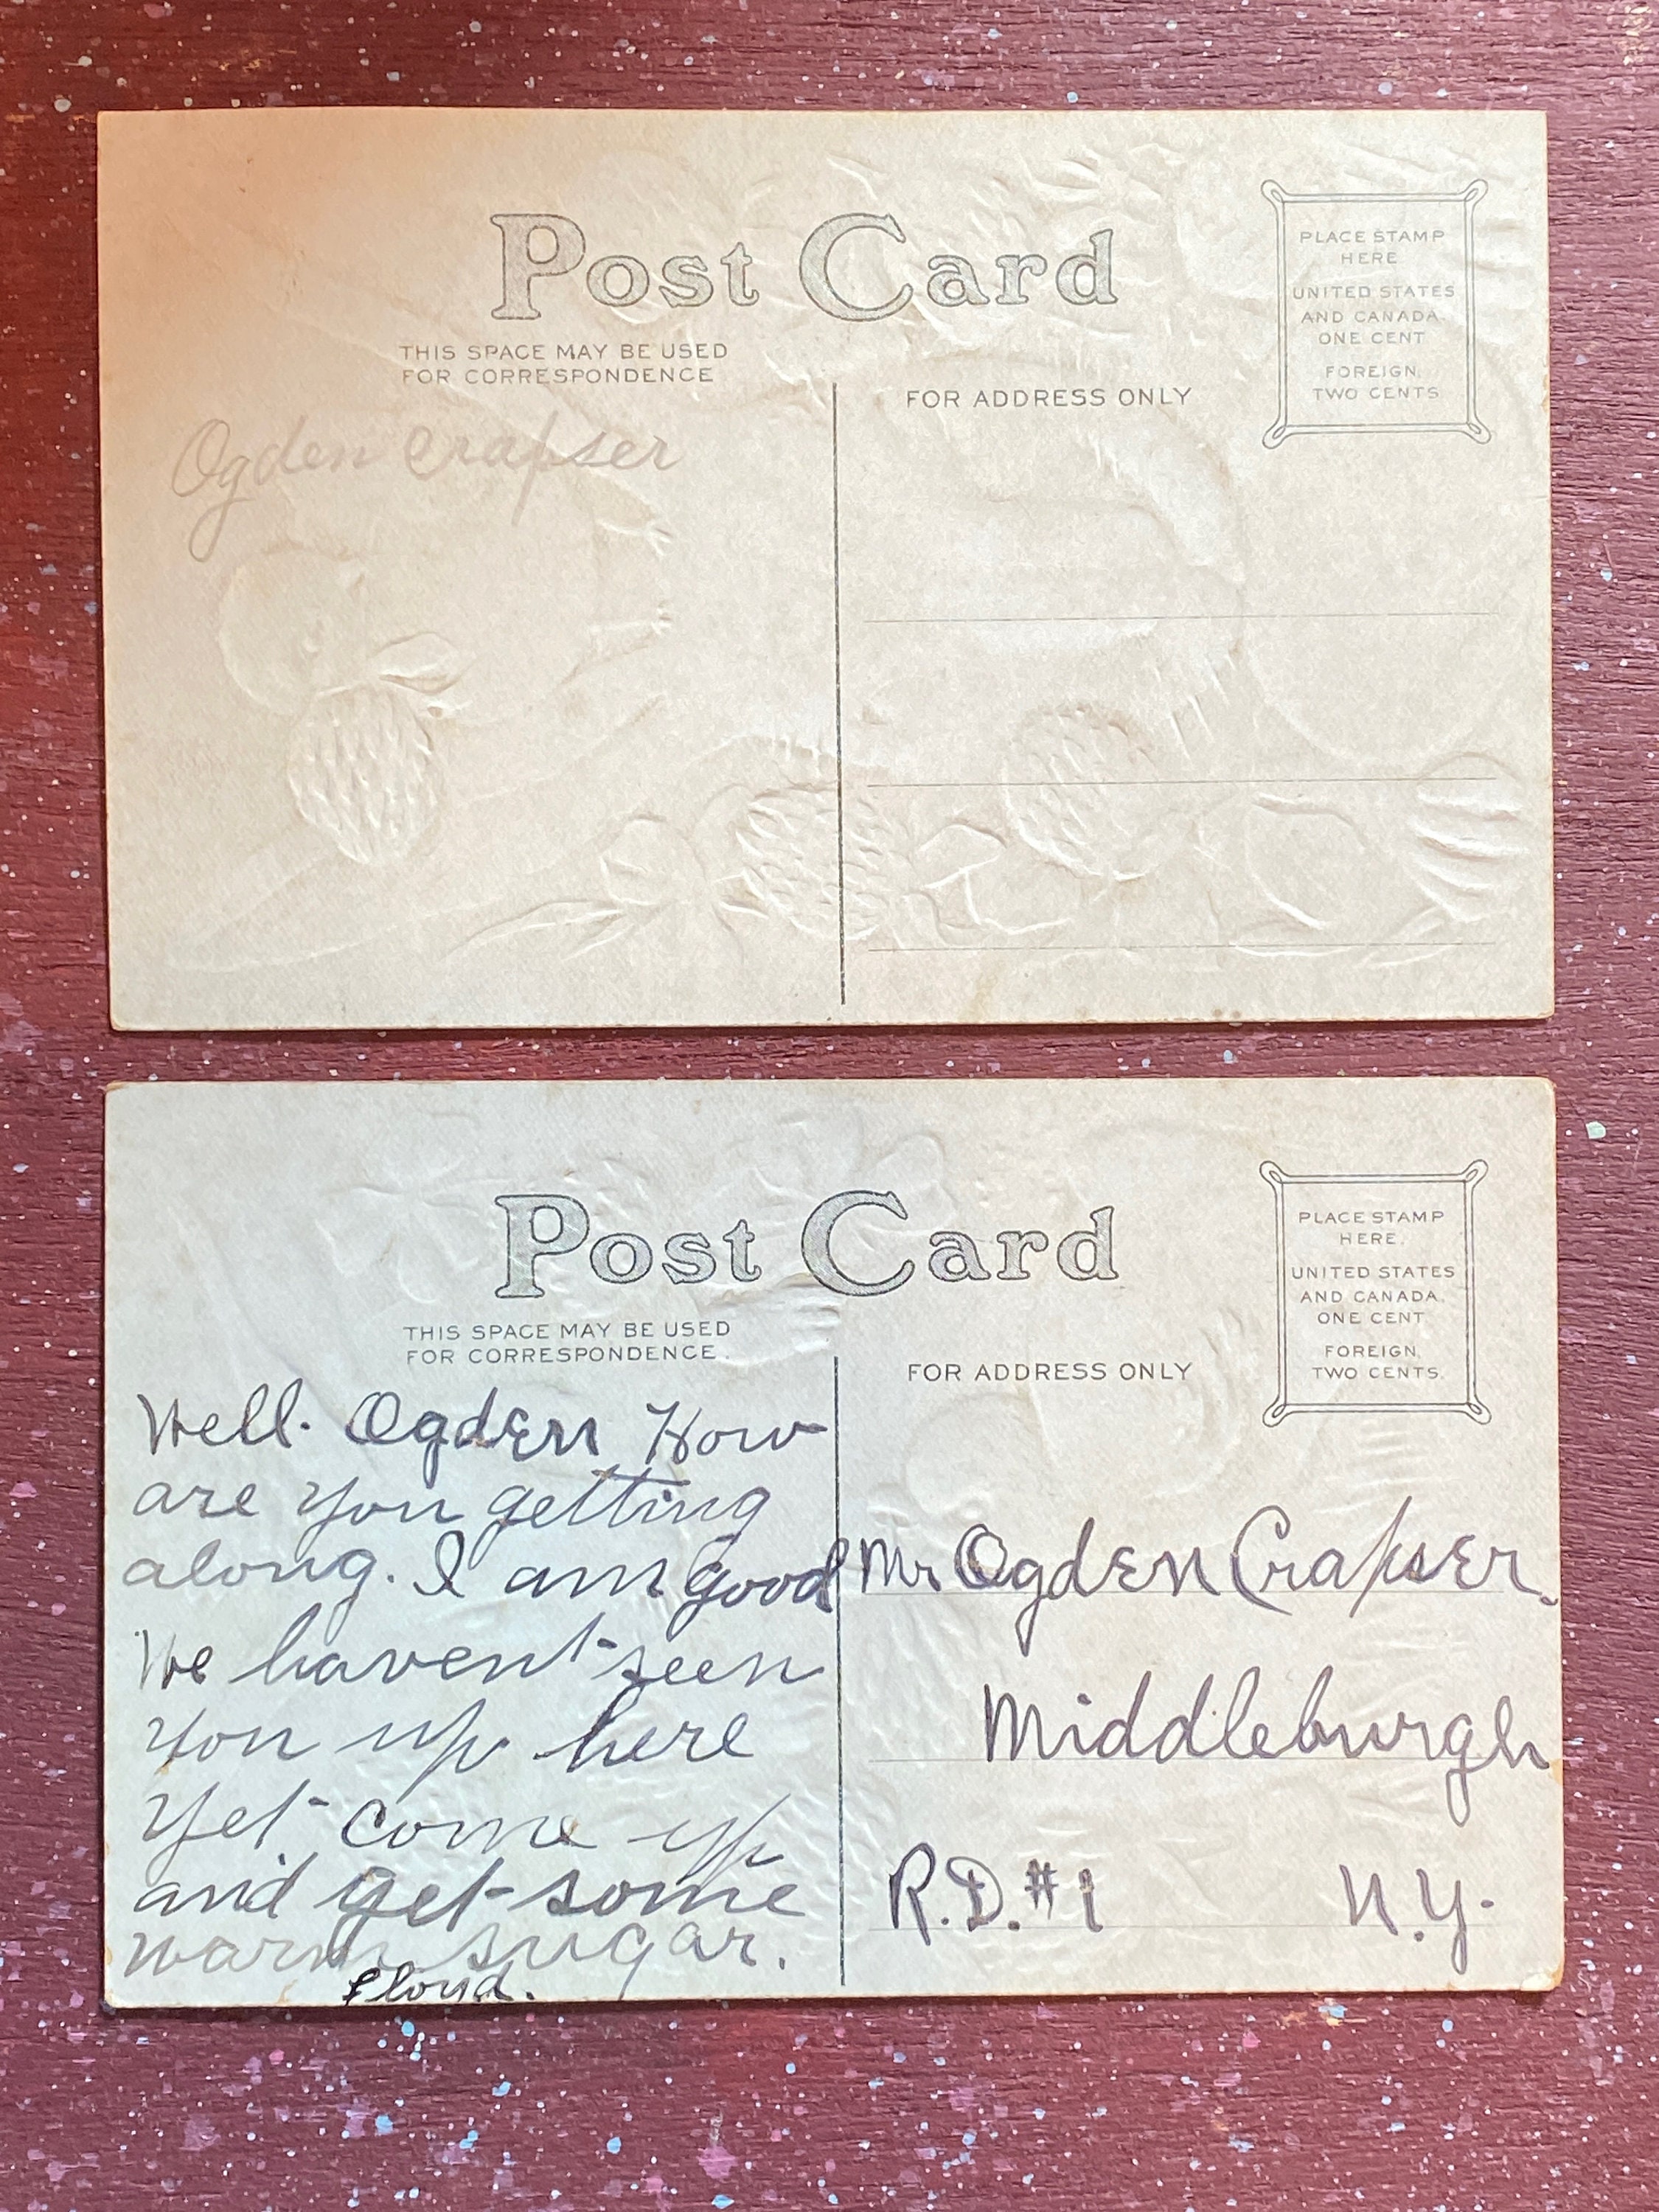 Post Card
THIS SPACE MAY BE USED
FOR CORRESPONDENCE
FOR ADDRESS ONLY
PLACE STAMP
HERE
UNITED STATES
AND CANADA,
ONE CENT
FOREIGN,
TWO CENTS.
Ogden Crapser
Post Card
THIS SPACE MAY BE USED
FOR CORRESPONDENCE.
FOR ADDRESS ONLY
PLACE STAMP
HERE.
UNITED STATES
AND CANADA,
ONE CENT
FOREIGN,
TWO CENTS.
Well. Ogden How
are you getting
along. I am good
We haven't seen
you up here
yet come up
and get some
warm sugar.
Floyd.
Mr Ogden Crapser.
Middleburgh
R.D.#1 N.Y.